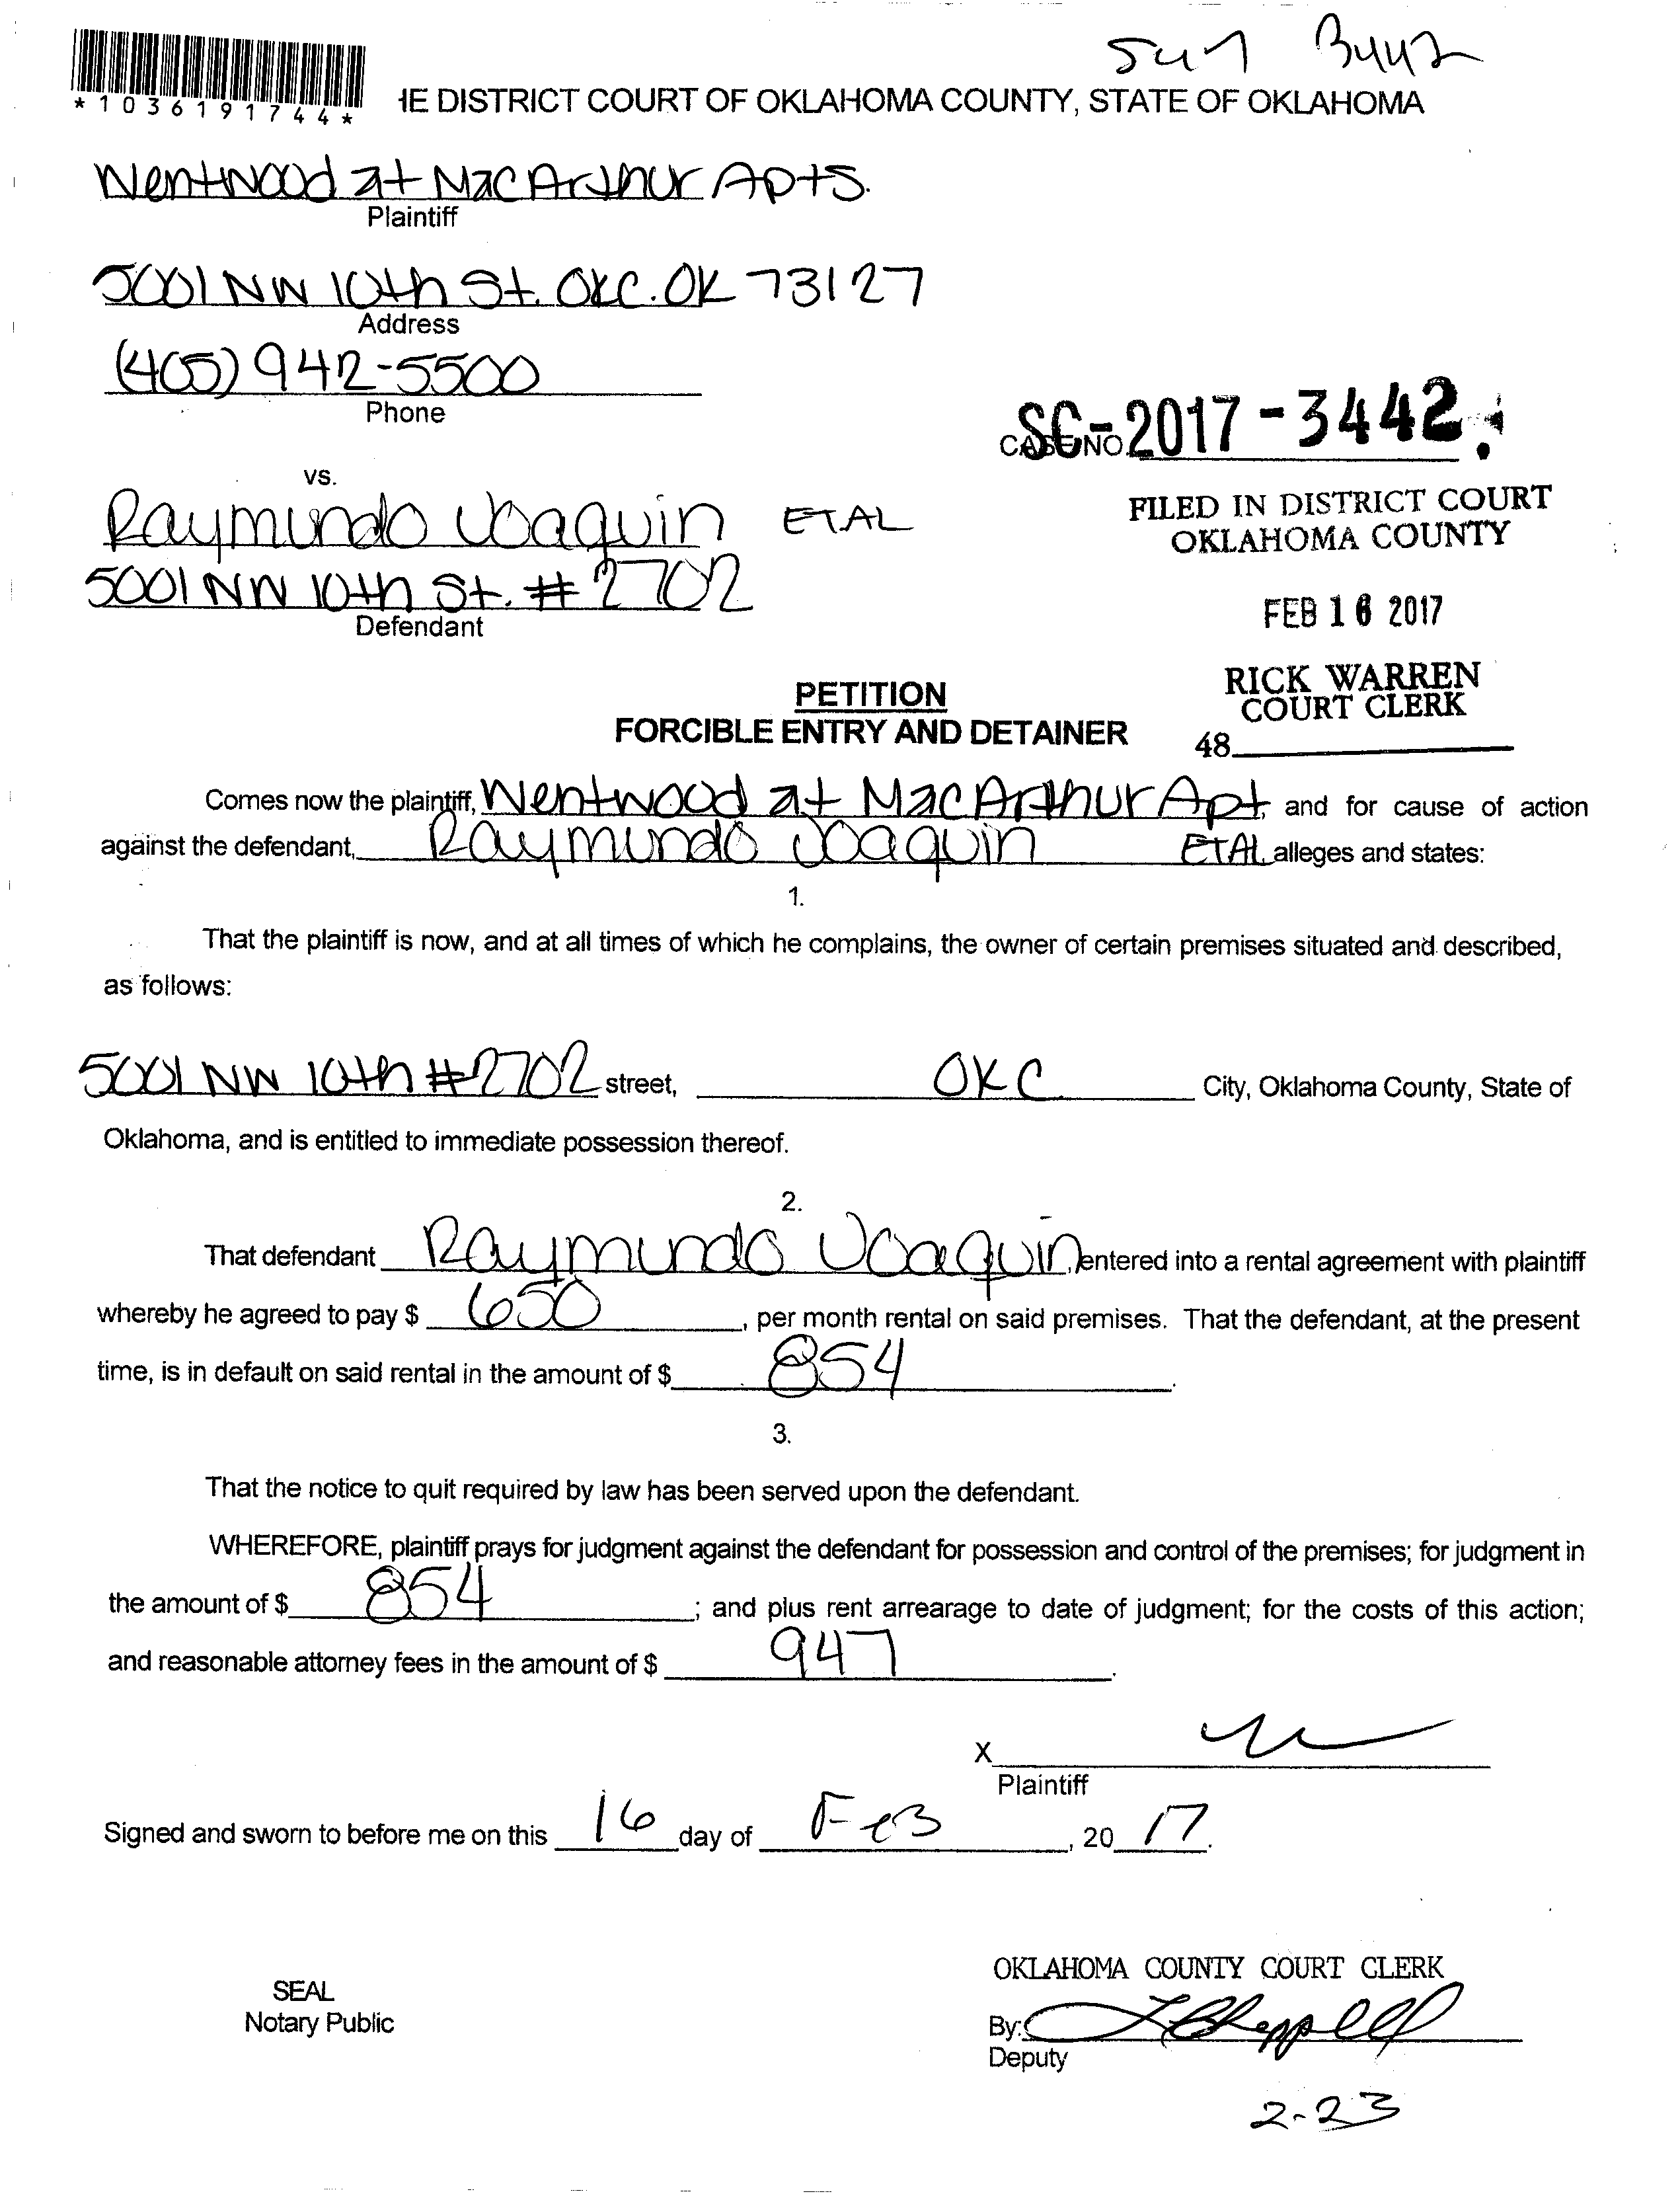 *1036191744*
HE DISTRICT COURT OF OKLAHOMA COUNTY, STATE OF OKLAHOMA
Wentwood at MacArthur Apts.
Plaintiff
5001 NW 10th St. OKC. OK 73127
Address
(405) 942-5500
Phone
CASE NO. SC-2017-3442
vs.
Raymundo Joaquin ETAL
5001 NW 10th St. # 2702
Defendant
FILED IN DISTRICT COURT
OKLAHOMA COUNTY
FEB 16 2017
RICK WARREN
COURT CLERK
48
PETITION
FORCIBLE ENTRY AND DETAINER
Comes now the plaintiff, Wentwood at MacArthur Apt, and for cause of action
against the defendant, Raymundo Joaquin ETAL alleges and states:
1.
That the plaintiff is now, and at all times of which he complains, the owner of certain premises situated and described,
as follows:
5001 NW 10th #2702 street, OKC City, Oklahoma County, State of
Oklahoma, and is entitled to immediate possession thereof.
2.
That defendant Raymundo Joaquin, entered into a rental agreement with plaintiff
whereby he agreed to pay $ 650, per month rental on said premises. That the defendant, at the present
time, is in default on said rental in the amount of $ 854.
3.
That the notice to quit required by law has been served upon the defendant.
WHEREFORE, plaintiff prays for judgment against the defendant for possession and control of the premises; for judgment in
the amount of $ 854; and plus rent arrearage to date of judgment; for the costs of this action;
and reasonable attorney fees in the amount of $ 947.
X
Plaintiff
Signed and sworn to before me on this 16 day of Feb, 20 17.
SEAL
Notary Public
OKLAHOMA COUNTY COURT CLERK
By:
Deputy
2-23